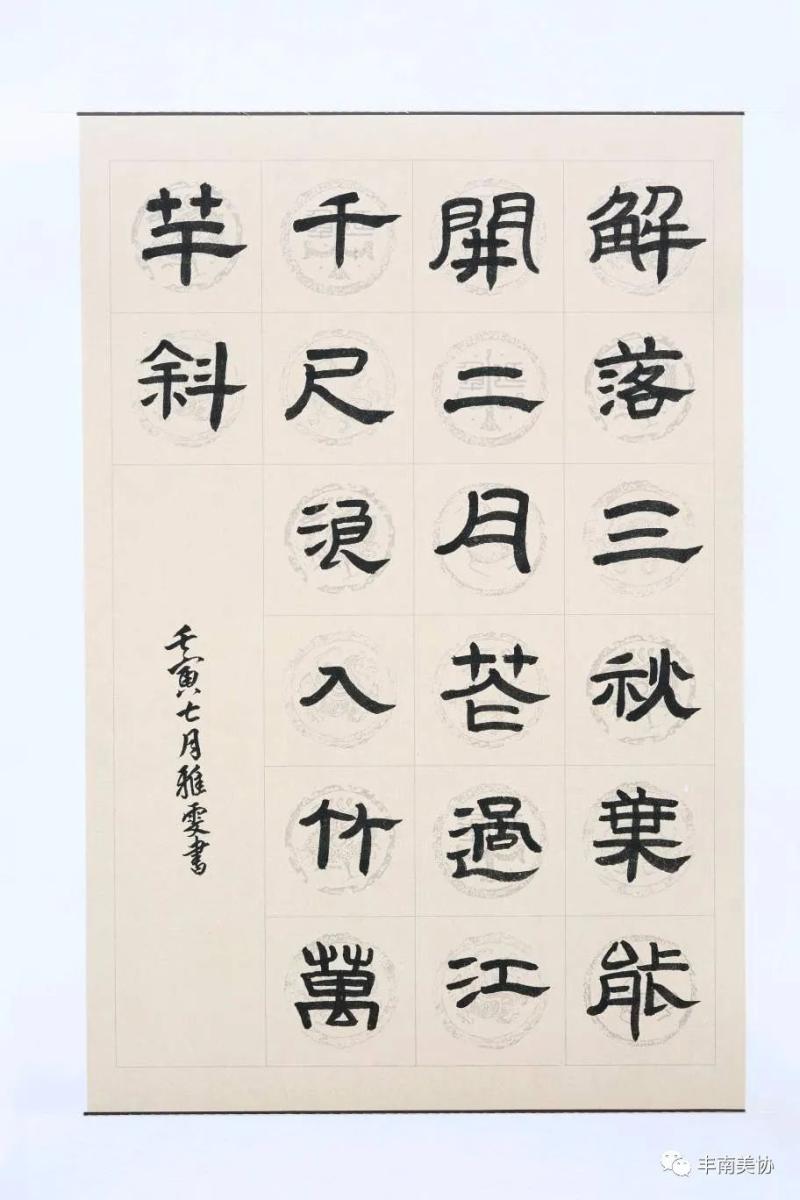 解落三秋葉能
開二月花過江
千尺浪入竹萬
芉斜
壬寅七月雅雯書
丰南美协